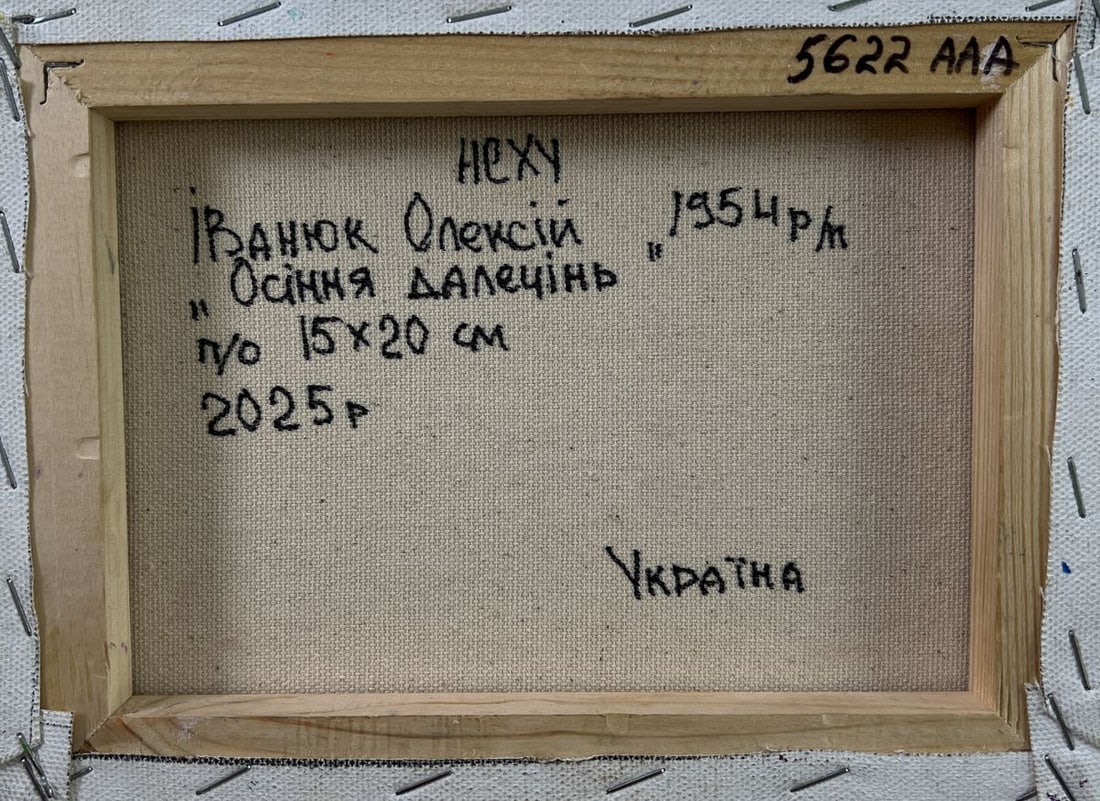 5622 ААА
НСХУ
Іванюк Олексій 1954 р/н
„Осіння далечінь"
п/о 15х20 см
2025р
Україна